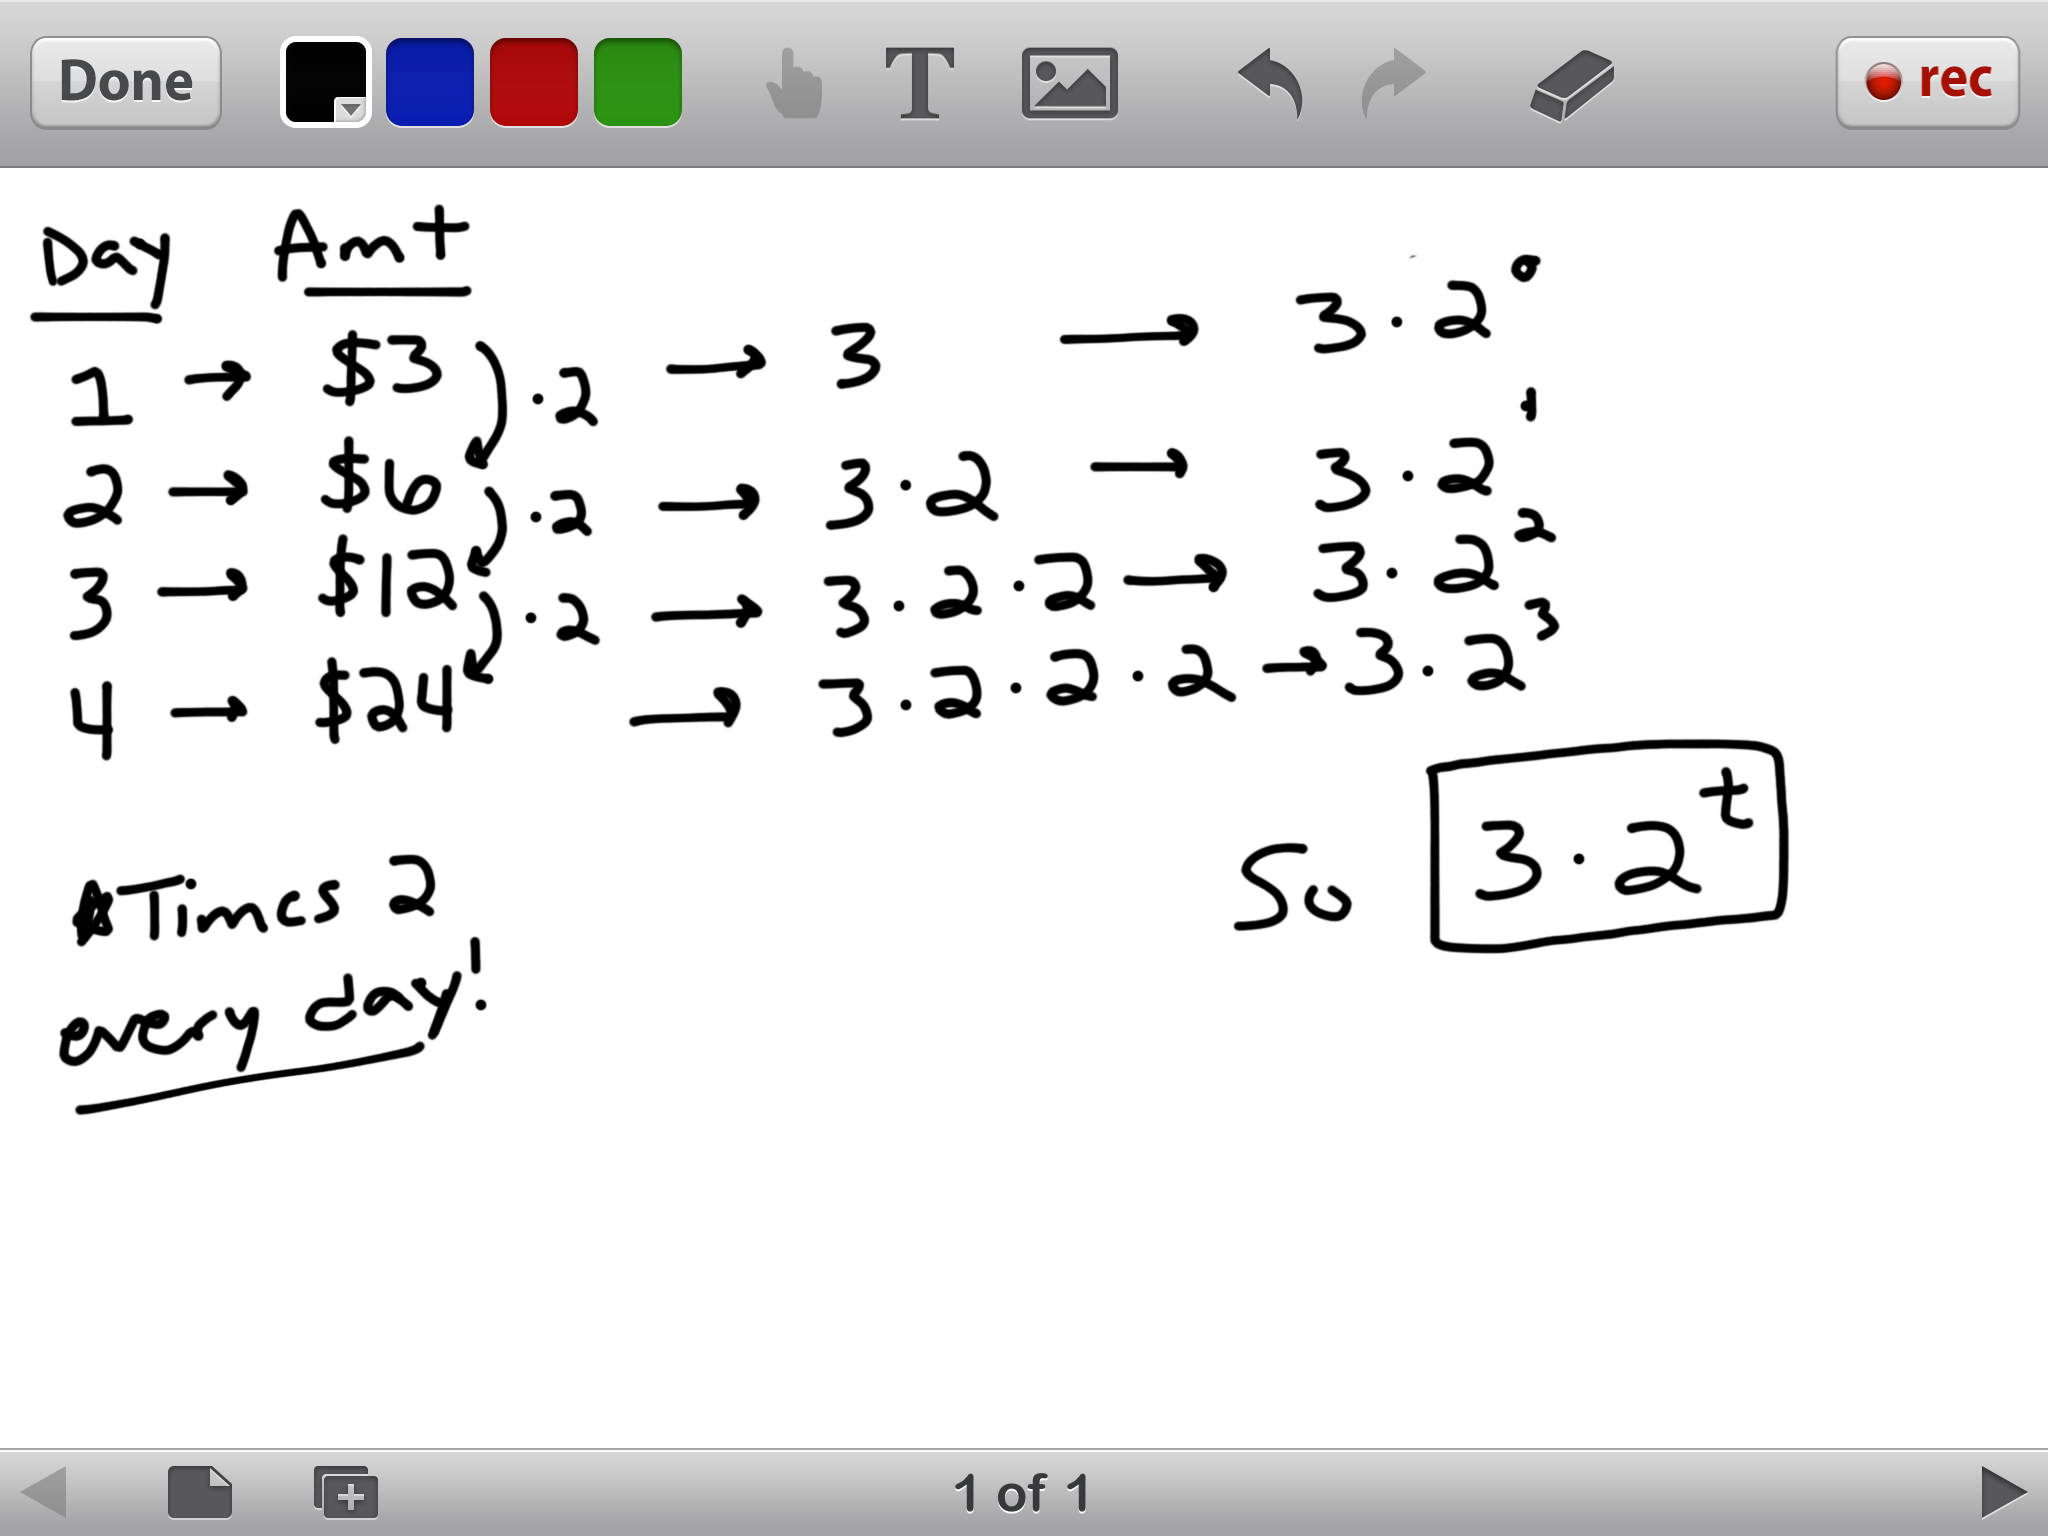 Done T rec
Day Amt
1 → $3 · 2 → 3 → 3 · 2⁰
2 → $6 · 2 → 3 · 2 → 3 · 2¹
3 → $12 · 2 → 3 · 2 · 2 → 3 · 2²
4 → $24 → 3 · 2 · 2 · 2 → 3 · 2³
Times 2
every day!
So 3 · 2ᵗ
1 of 1